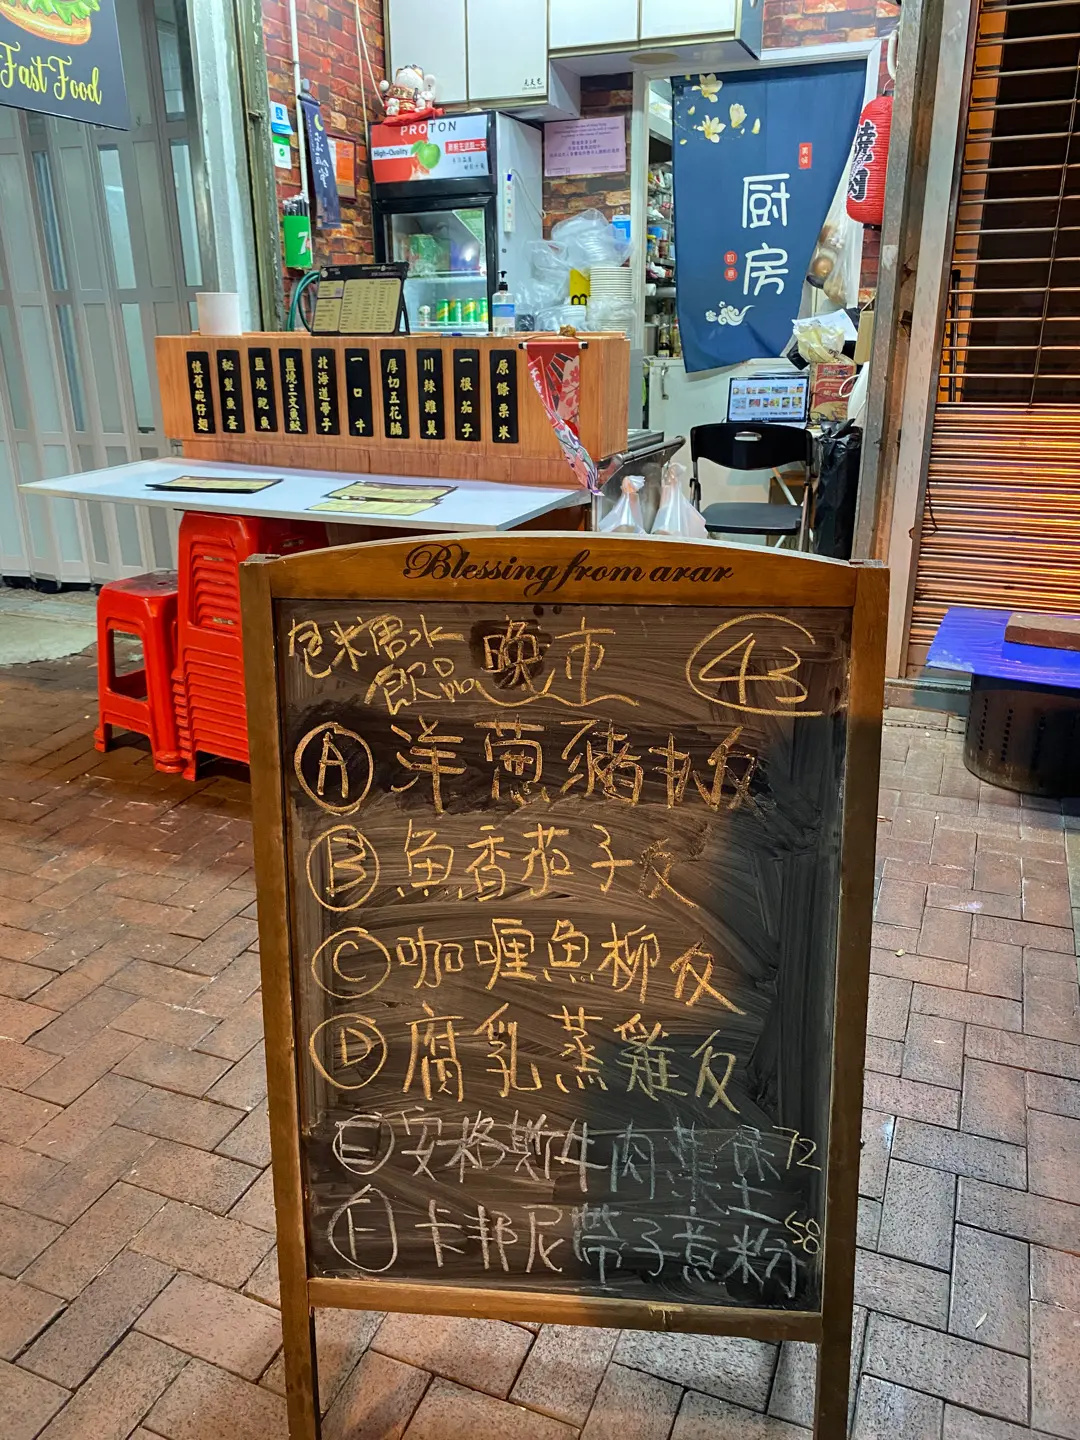 Fast Food
PROTON
High-Quality
厨房
如意
燒肉
7
懷舊碗仔翅
秘製魚蛋
鹽燒魷魚
鹽燒三文魚鮫
北海道帶子
一口牛
厚切五花腩
川辣雞翼
一根茄子
原條粟米
Blessing from arar
包米糖水
飲品
晚市
43
A 洋蔥豬扒反
B 魚香茄子反
C 咖喱魚柳反
D 腐乳蒸雞反
E 安格斯牛肉漢堡 72
F 卡邦尼帶子意粉 58